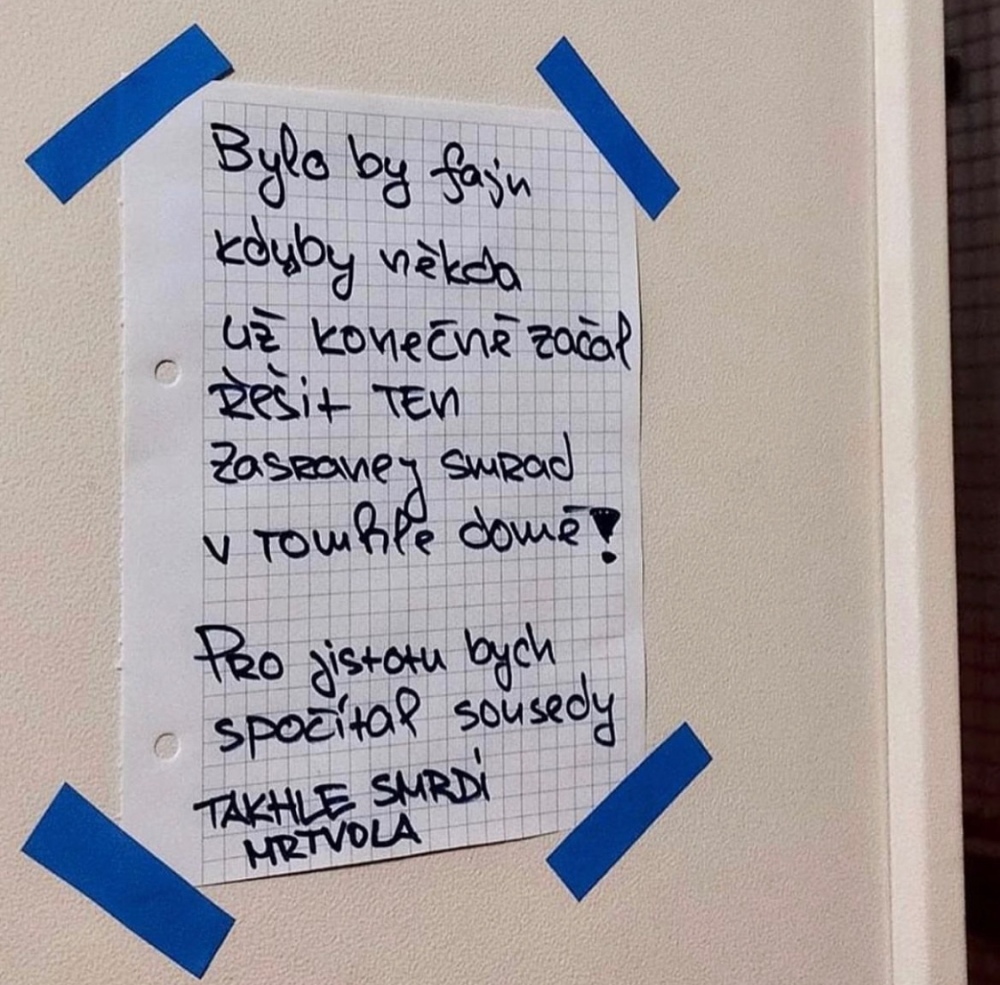 Bylo by fajn
kdyby někda
už konečně začal
řešit TEN
zasranej smrad
v tomhle domě!
Pro jistotu bych
spočítal sousedy
TAKHLE SMRDÍ
MRTVOLA